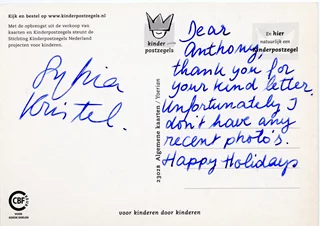 Kijk en bestel op www.kinderpostzegels.nl
Met de opbrengst uit de verkoop van
kaarten en Kinderpostzegels steunt de
Stichting Kinderpostzegels Nederland
projecten voor kinderen.
Sylvia
Kristel.
CBF
voor kinderen door kinderen
23028 Algemene kaarten /
kinder
postzegels
hier
natuurlijk een
kinderpostzegel
Dear
Anthony,
thank you for
your kind letter.
Unfortunately I
don't have any
recent photo's.
Happy Holidays